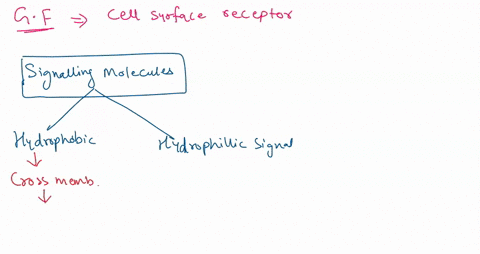 G.F ⇒ Cell surface receptor
Signalling Molecules
Hydrophobic Hydrophillic Signal
↓
Cross memb.
↓